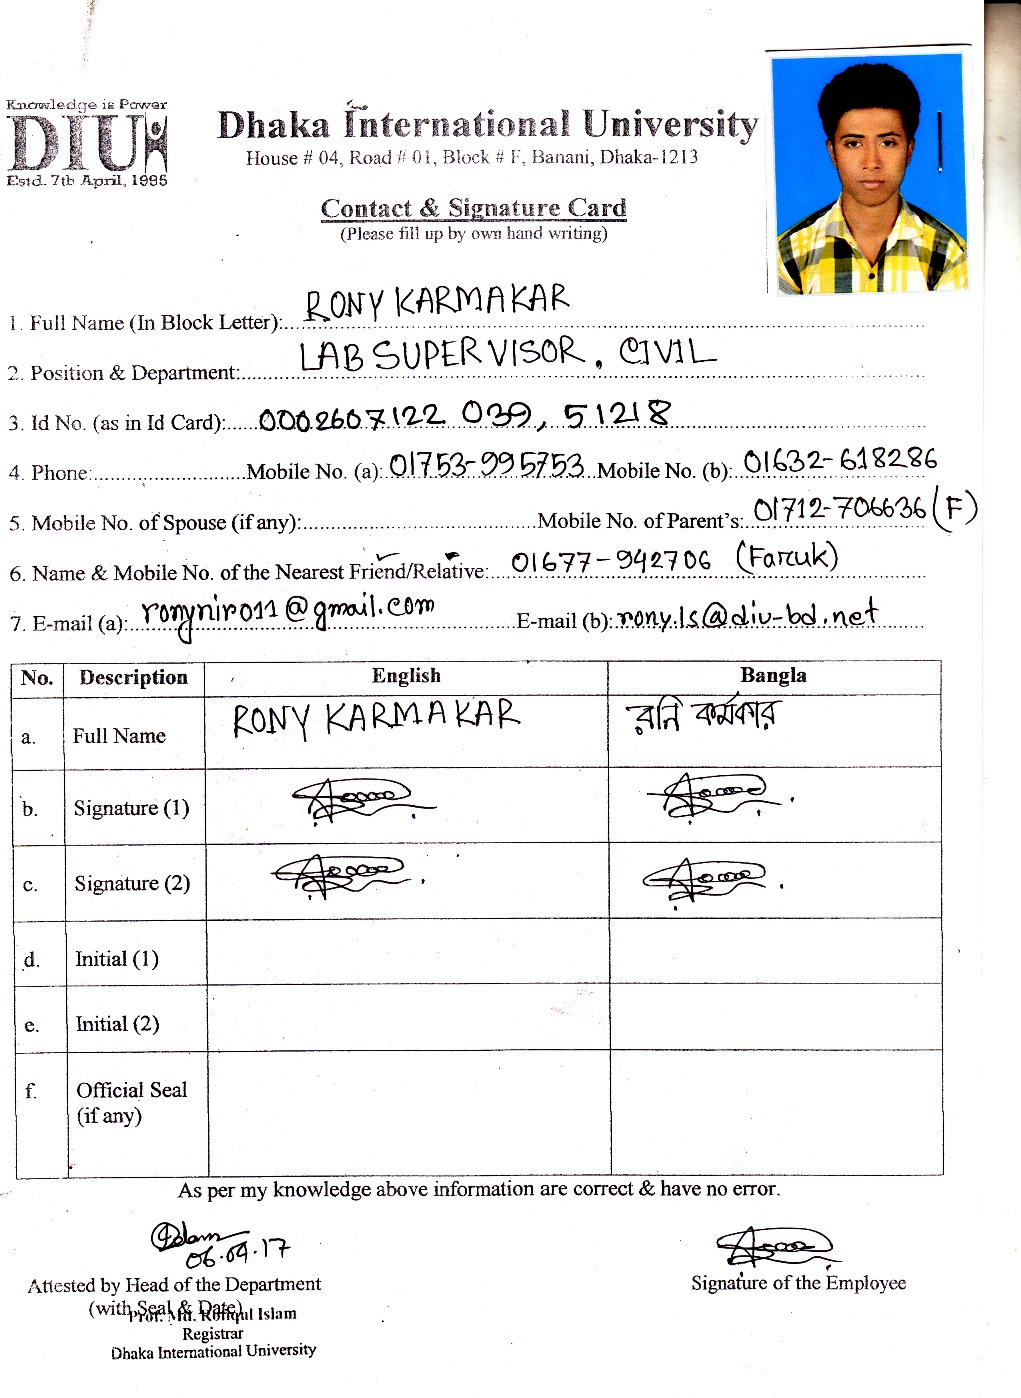 Knowledge is Power
DIU
Estd. 7th April, 1995
Dhaka International University
House # 04, Road # 01, Block # F, Banani, Dhaka-1213
Contact & Signature Card
(Please fill up by own hand writing)
1. Full Name (In Block Letter): RONY KARMAKAR
2. Position & Department: LAB SUPERVISOR, CIVIL
3. Id No. (as in Id Card): 0002607122 039, 51218
4. Phone: Mobile No. (a): 01753-995753 Mobile No. (b): 01632-618286
5. Mobile No. of Spouse (if any): Mobile No. of Parent's: 01712-706636 (F)
6. Name & Mobile No. of the Nearest Friend/Relative: 01677-942706 (Faruk)
7. E-mail (a): ronyniro11@gmail.com E-mail (b): rony.ls@diu-bd.net
No. Description English Bangla
a. Full Name RONY KARMAKAR রনি কর্মকার
b. Signature (1)
c. Signature (2)
d. Initial (1)
e. Initial (2)
f. Official Seal
(if any)
As per my knowledge above information are correct & have no error.
06.09.17
Attested by Head of the Department Signature of the Employee
(with Seal & Date)
Prof. Md. Rofiqul Islam
Registrar
Dhaka International University